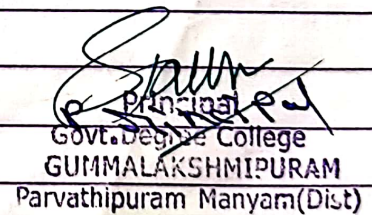 Principal
Govt.Degree College
GUMMALAKSHMIPURAM
Parvathipuram Manyam(Dist)